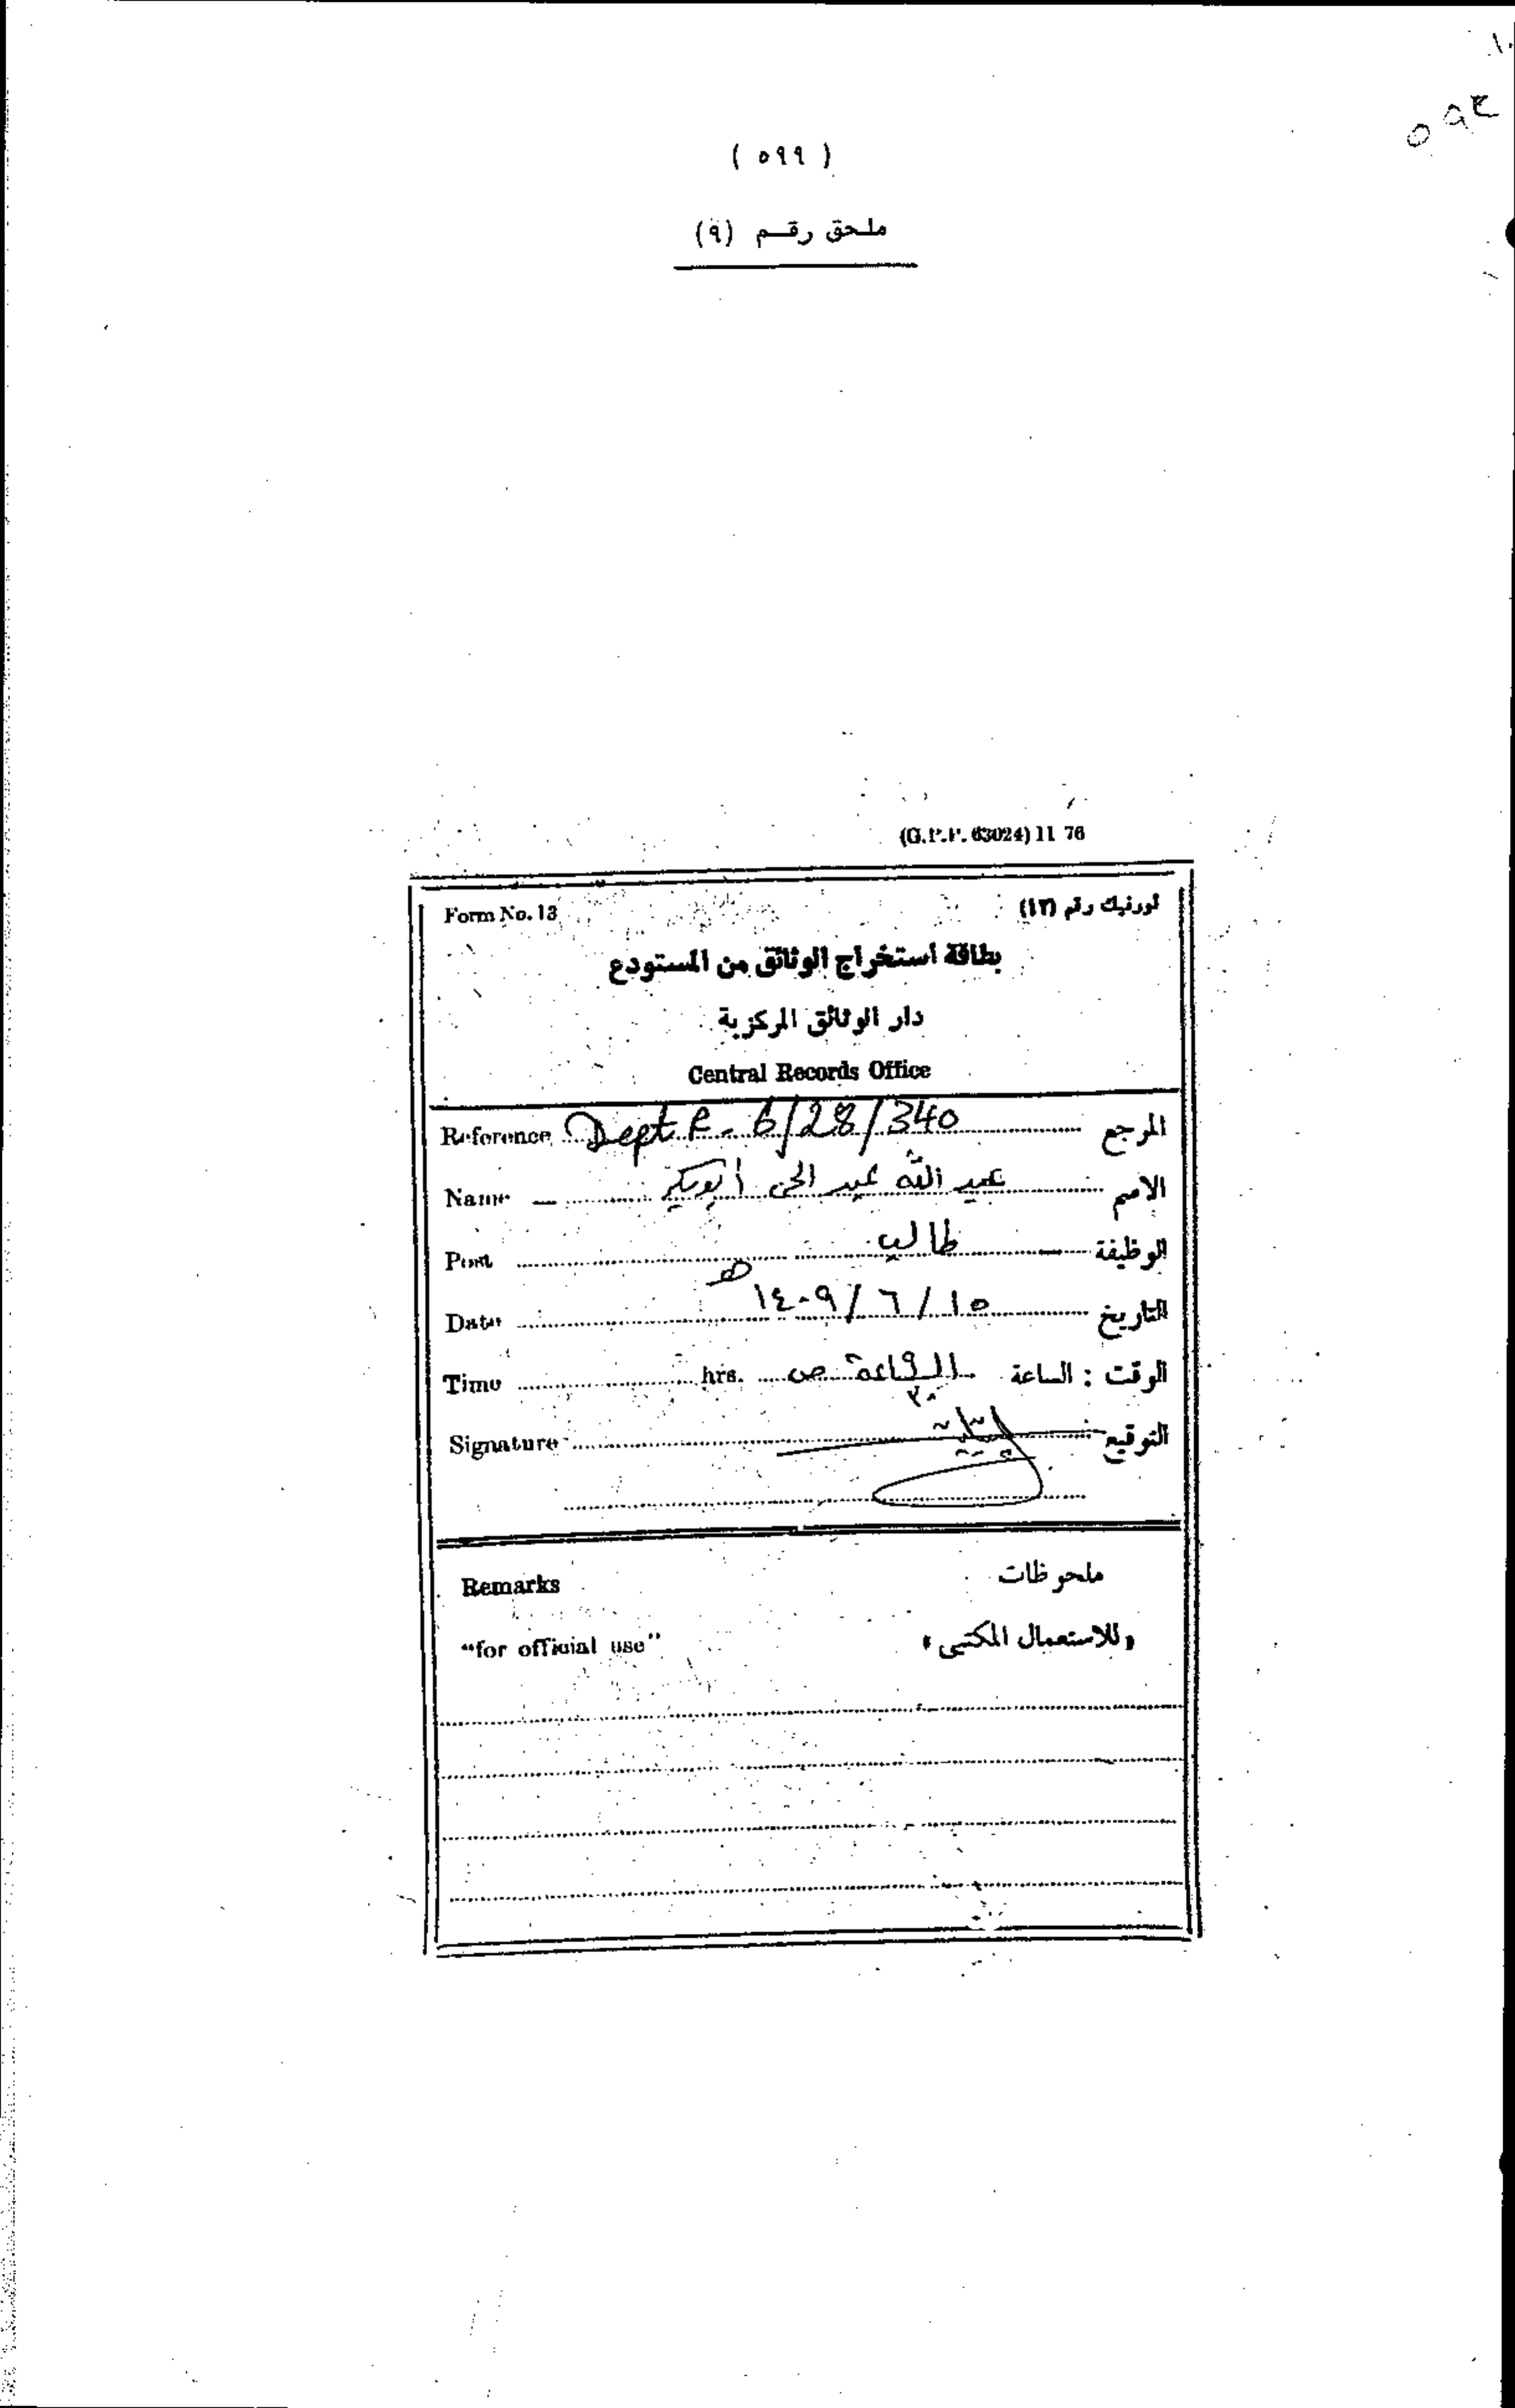 ( ٥٩٩ )
ملحق رقم (٩)
(G.P.P. 63024) 11 76
Form No. 13 اورنيك رقم (١٣)
بطاقة استخراج الوثائق من المستودع
دار الوثائق المركزية
Central Records Office
Reference Dept R - 6/28/340 المرجع
Name عبد الله عبد الحى أبوبكر الاسم
Post طالب الوظيفة
Date ١٥ / ٦ / ١٤٠٩ هـ التاريخ
Time hrs. ص الوقت : الساعة
Signature التوقيع
Remarks ملحوظات
“for official use” «للاستعمال المكتبى»